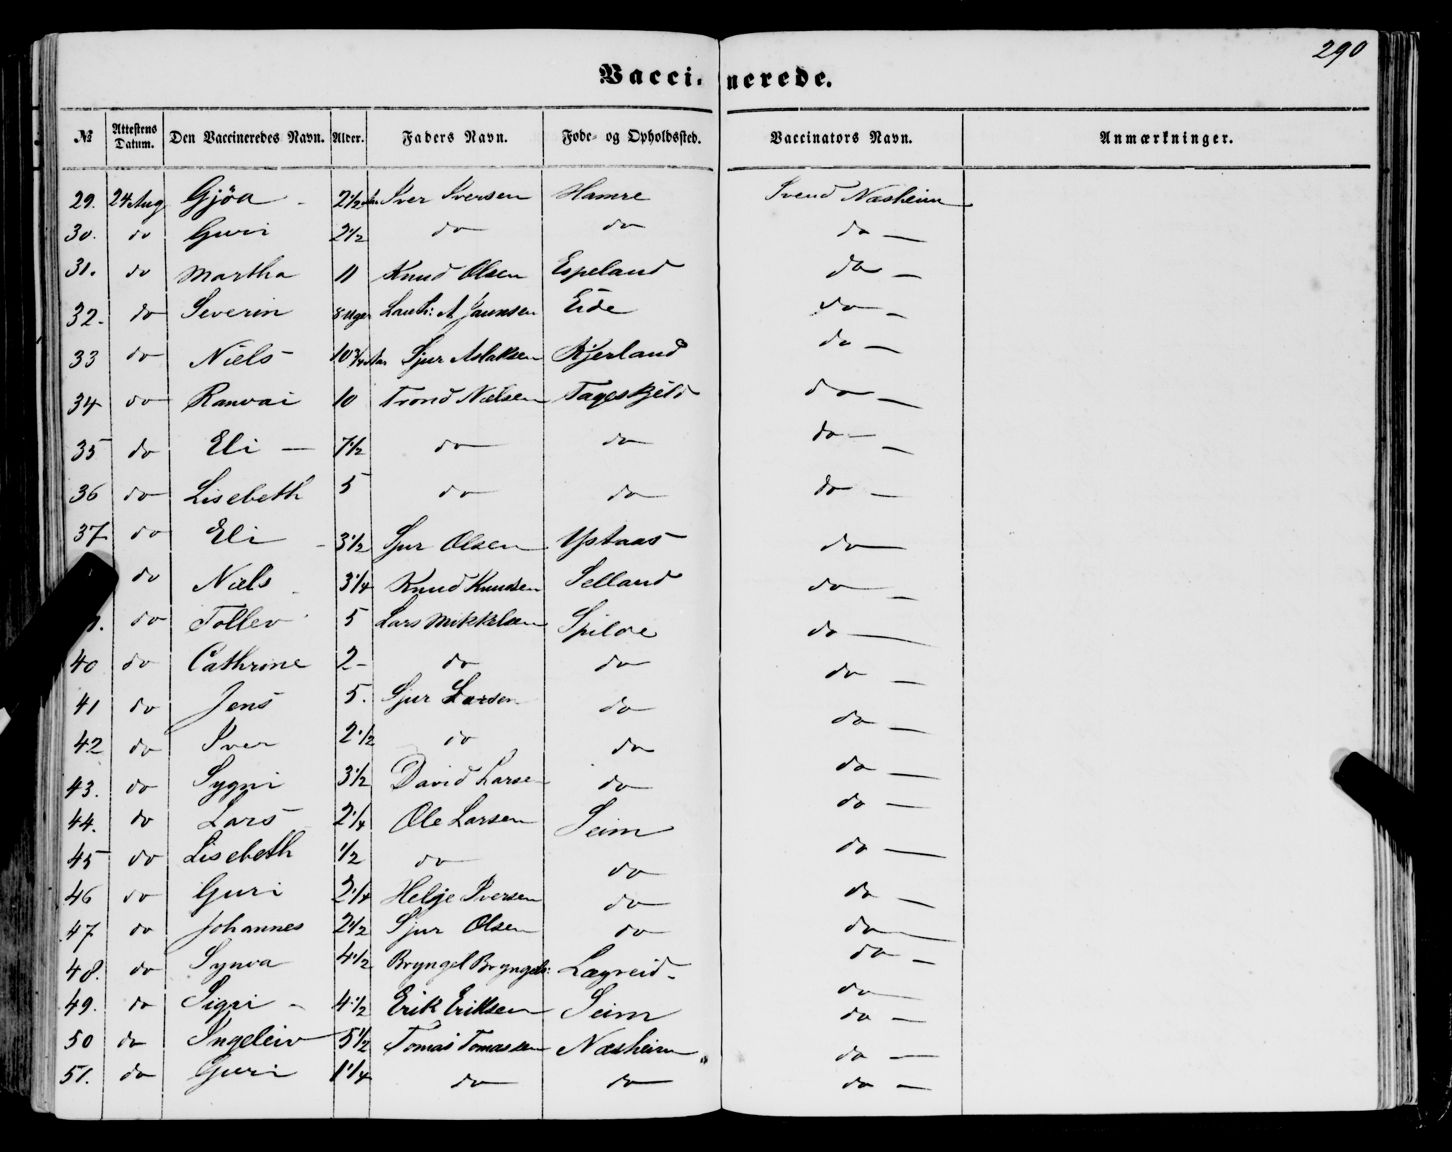 290
Vaccinerede.
№ Attestens Datum. Den Vaccineredes Navn. Alder. Faders Navn. Fode- og Opholdssted. Vaccinators Navn. Anmærkninger.
29. 24 Aug Gjöa - 2 1/2 Aar Iver Iversen Hamre Svend Næsheim
30. do Guri 2 1/2 do do do —
31. do Martha 11 Knud Olsen Espeland do —
32. do Severin 8 Uger A Jaunsen Eide do —
33 do Niels 10 3/4 Aar Sjur Aslaksen Kjerland do —
34 do Ranvai 10 Trond Nielsen do —
35 do Eli — 7 1/2 do do do —
36 do Lisebeth 5 do do do —
37 do Eli - 3 1/2 Sjur Olsen Ystaas do —
do Niels 3 1/4 Knud Knudsen Selland do —
do Tollev 5 Lars Mikkelsen Spilde do —
40 do Cathrine 2 - do do do —
41 do Jens 5. Sjur Larsen do do —
42 do Iver 2 1/2 do do do —
43. do Sygni 3 1/2 David Larsen do do —
44. do Lars 2 1/4 Ole Larsen Seim do —
45 do Lisebeth 1/2 do do do —
46 do Guri 2 1/4 Helje Iversen do do —
47 do Johannes 2 1/2 Sjur Olsen do do —
48. do Synva 4 1/2 Bryngel Bryngels: Lægreid - do —
49. do Sigri - 4 1/2 Erik Eriksen Seim do —
50 do Ingeleiv 5 1/2 Tomas Tomassen Næsheim do —
51. do Guri 1 1/4 do do do —